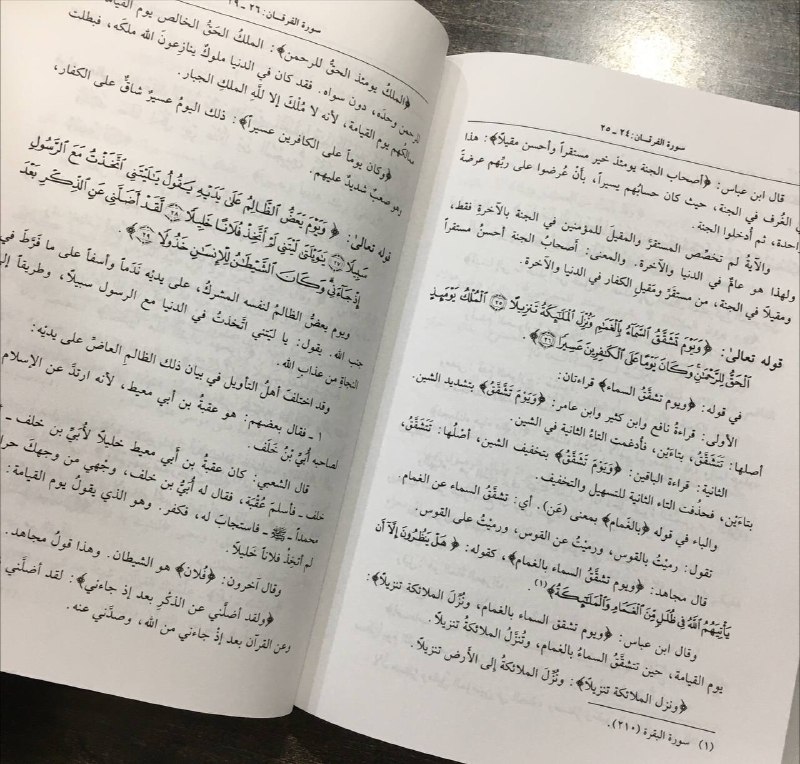 سورة الفرقان: ٢٤ - ٢٥
قال ابن عباس: ﴿أصحاب الجنة يومئذ خير مستقراً وأحسن مقيلاً﴾: هذا
في الغُرف في الجنة، حيث كان حسابُهم يسيراً، بأنْ عُرضوا على ربِّهم عرضةً
واحدة، ثم أُدخلوا الجنة.
والآيةُ لم تخصِّص المستقرَّ والمقيلَ للمؤمنين في الجنة بالآخرة فقط،
ولهذا هو عامٌّ في الدنيا والآخرة. والمعنى: أصحابُ الجنة أحسنُ مستقراً
ومقيلاً في الجنة، من مستقَرِّ ومَقيلِ الكفار في الدنيا والآخرة.
قوله تعالىٰ: ﴿وَيَوْمَ تَشَقَّقُ ٱلسَّمَآءُ بِٱلْغَمَٰمِ وَنُزِّلَ ٱلْمَلَٰٓئِكَةُ تَنزِيلًا ٢٥ ٱلْمُلْكُ يَوْمَئِذٍ
ٱلْحَقُّ لِلرَّحْمَٰنِ وَكَانَ يَوْمًا عَلَى ٱلْكَٰفِرِينَ عَسِيرًا ٢٦﴾.
في قوله: ﴿ويوم تشقَّقُ السماء﴾ قراءتان:
الأولى: قراءةُ نافع وابن كثير وابن عامر: ﴿وَيَوْمَ تَشَّقَّقُ﴾ بتشديد الشين.
أصلها: تَتَشَقَّقُ، بتاءَيْن، فأُدغمت التاءُ الثانية في الشين.
الثانية: قراءة الباقين: ﴿وَيَوْمَ تَشَقَّقُ﴾ بتخفيف الشين، أصْلُها: تَتَشَقَّقُ،
بتاءَيْن، فحذُفت التاء الثانية للتسهيل والتخفيف.
والباء في قوله ﴿بالغَمام﴾ بمعنى (عَن). أي: تشقَّقُ السماء عن الغمام.
تقول: رميْتُ بالقوس، ورميْتُ عن القوس، ورميْتُ على القوس.
قال مجاهد: ﴿ويوم تشقَّقُ السماء بالغمام﴾، كقوله: ﴿هَلْ يَنظُرُونَ إِلَّآ أَن
يَأْتِيَهُمُ ٱللَّهُ فِى ظُلَلٍ مِّنَ ٱلْغَمَامِ وَٱلْمَلَٰٓئِكَةُ﴾(١).
وقال ابن عباس: ﴿ويوم تشقق السماء بالغمام، ونُزِّلَ الملائكة تنزيلاً﴾:
يوم القيامة، حين تتشقَّقُ السماءُ بالغمام، وتُنزَّلُ الملائكةُ تنزيلاً.
﴿ونزل الملائكة تنزيلاً﴾: ونُزِّلُ الملائكةُ إلى الأرض تنزيلاً.
(١) سورة البقرة (٢١٠).
سورة الفرقان: ٢٦ - ٢٩
﴿الملكُ يومئذ الحقُّ للرحمن﴾: الملكُ الحَقُّ الخالص يوم القيامة
للرحمن وحدَه، دون سواه. فقد كان في الدنيا ملوكٌ ينازعونَ الله ملكَه، فبطلت
ممالكُهم يوم القيامة، لأنه لا مُلْكَ إلا للَّهِ الملكِ الجبار.
﴿وكان يوماً على الكافرين عسيراً﴾: ذلك اليومُ عسيرٌ شاقٌّ على الكفار،
وهو صعبٌ شديدٌ عليهم.
قوله تعالىٰ: ﴿وَيَوْمَ يَعَضُّ ٱلظَّالِمُ عَلَىٰ يَدَيْهِ يَقُولُ يَٰلَيْتَنِى ٱتَّخَذْتُ مَعَ ٱلرَّسُولِ
سَبِيلًا ٢٧ يَٰوَيْلَتَىٰ لَيْتَنِى لَمْ أَتَّخِذْ فُلَانًا خَلِيلًا ٢٨ لَّقَدْ أَضَلَّنِى عَنِ ٱلذِّكْرِ بَعْدَ
إِذْ جَآءَنِى وَكَانَ ٱلشَّيْطَٰنُ لِلْإِنسَٰنِ خَذُولًا ٢٩﴾.
ويوم يعضُّ الظالمُ لنفسه المشركُ، على يديْه نَدَماً وأسفاً على ما فَرَّطَ في
جنب الله. يقول: يا ليْتني اتَّخذتُ في الدنيا مع الرسول سبيلاً، وطريقاً إلى
النجاةِ من عذابِ الله.
وقد اختلفَ أهلُ التأويل في بيان ذلك الظالمِ العاضِّ على يديْه:
١ - فقال بعضهم: هو عقبةُ بن أبي معيط، لأنه ارتدَّ عن الإسلام
لصاحبِه أُبَيُّ بنُ خَلَف.
قال الشعبي: كان عقبةُ بن أبي معيط خليلاً لأُبَيِّ بن خلف -
خلف - فأسلمَ عُقْبَة، فقال له أُبيُّ بن خلف، وجْهي من وجهكَ حرام
محمداً - ﷺ - فاستجابَ له، فكفر. وهو الذي يقولُ يوم القيامة:
لم أتخِذْ فلاناً خَليلاً.
وقال آخرون: ﴿فُلان﴾ هو الشيطان. وهذا قولُ مجاهد.
﴿ولقد أضلَّني عن الذكْرِ بعد إذ جاءني﴾: لقد أضلَّني
وعن القرآن بعد إذْ جاءَني من الله، وصدَّني عنه.